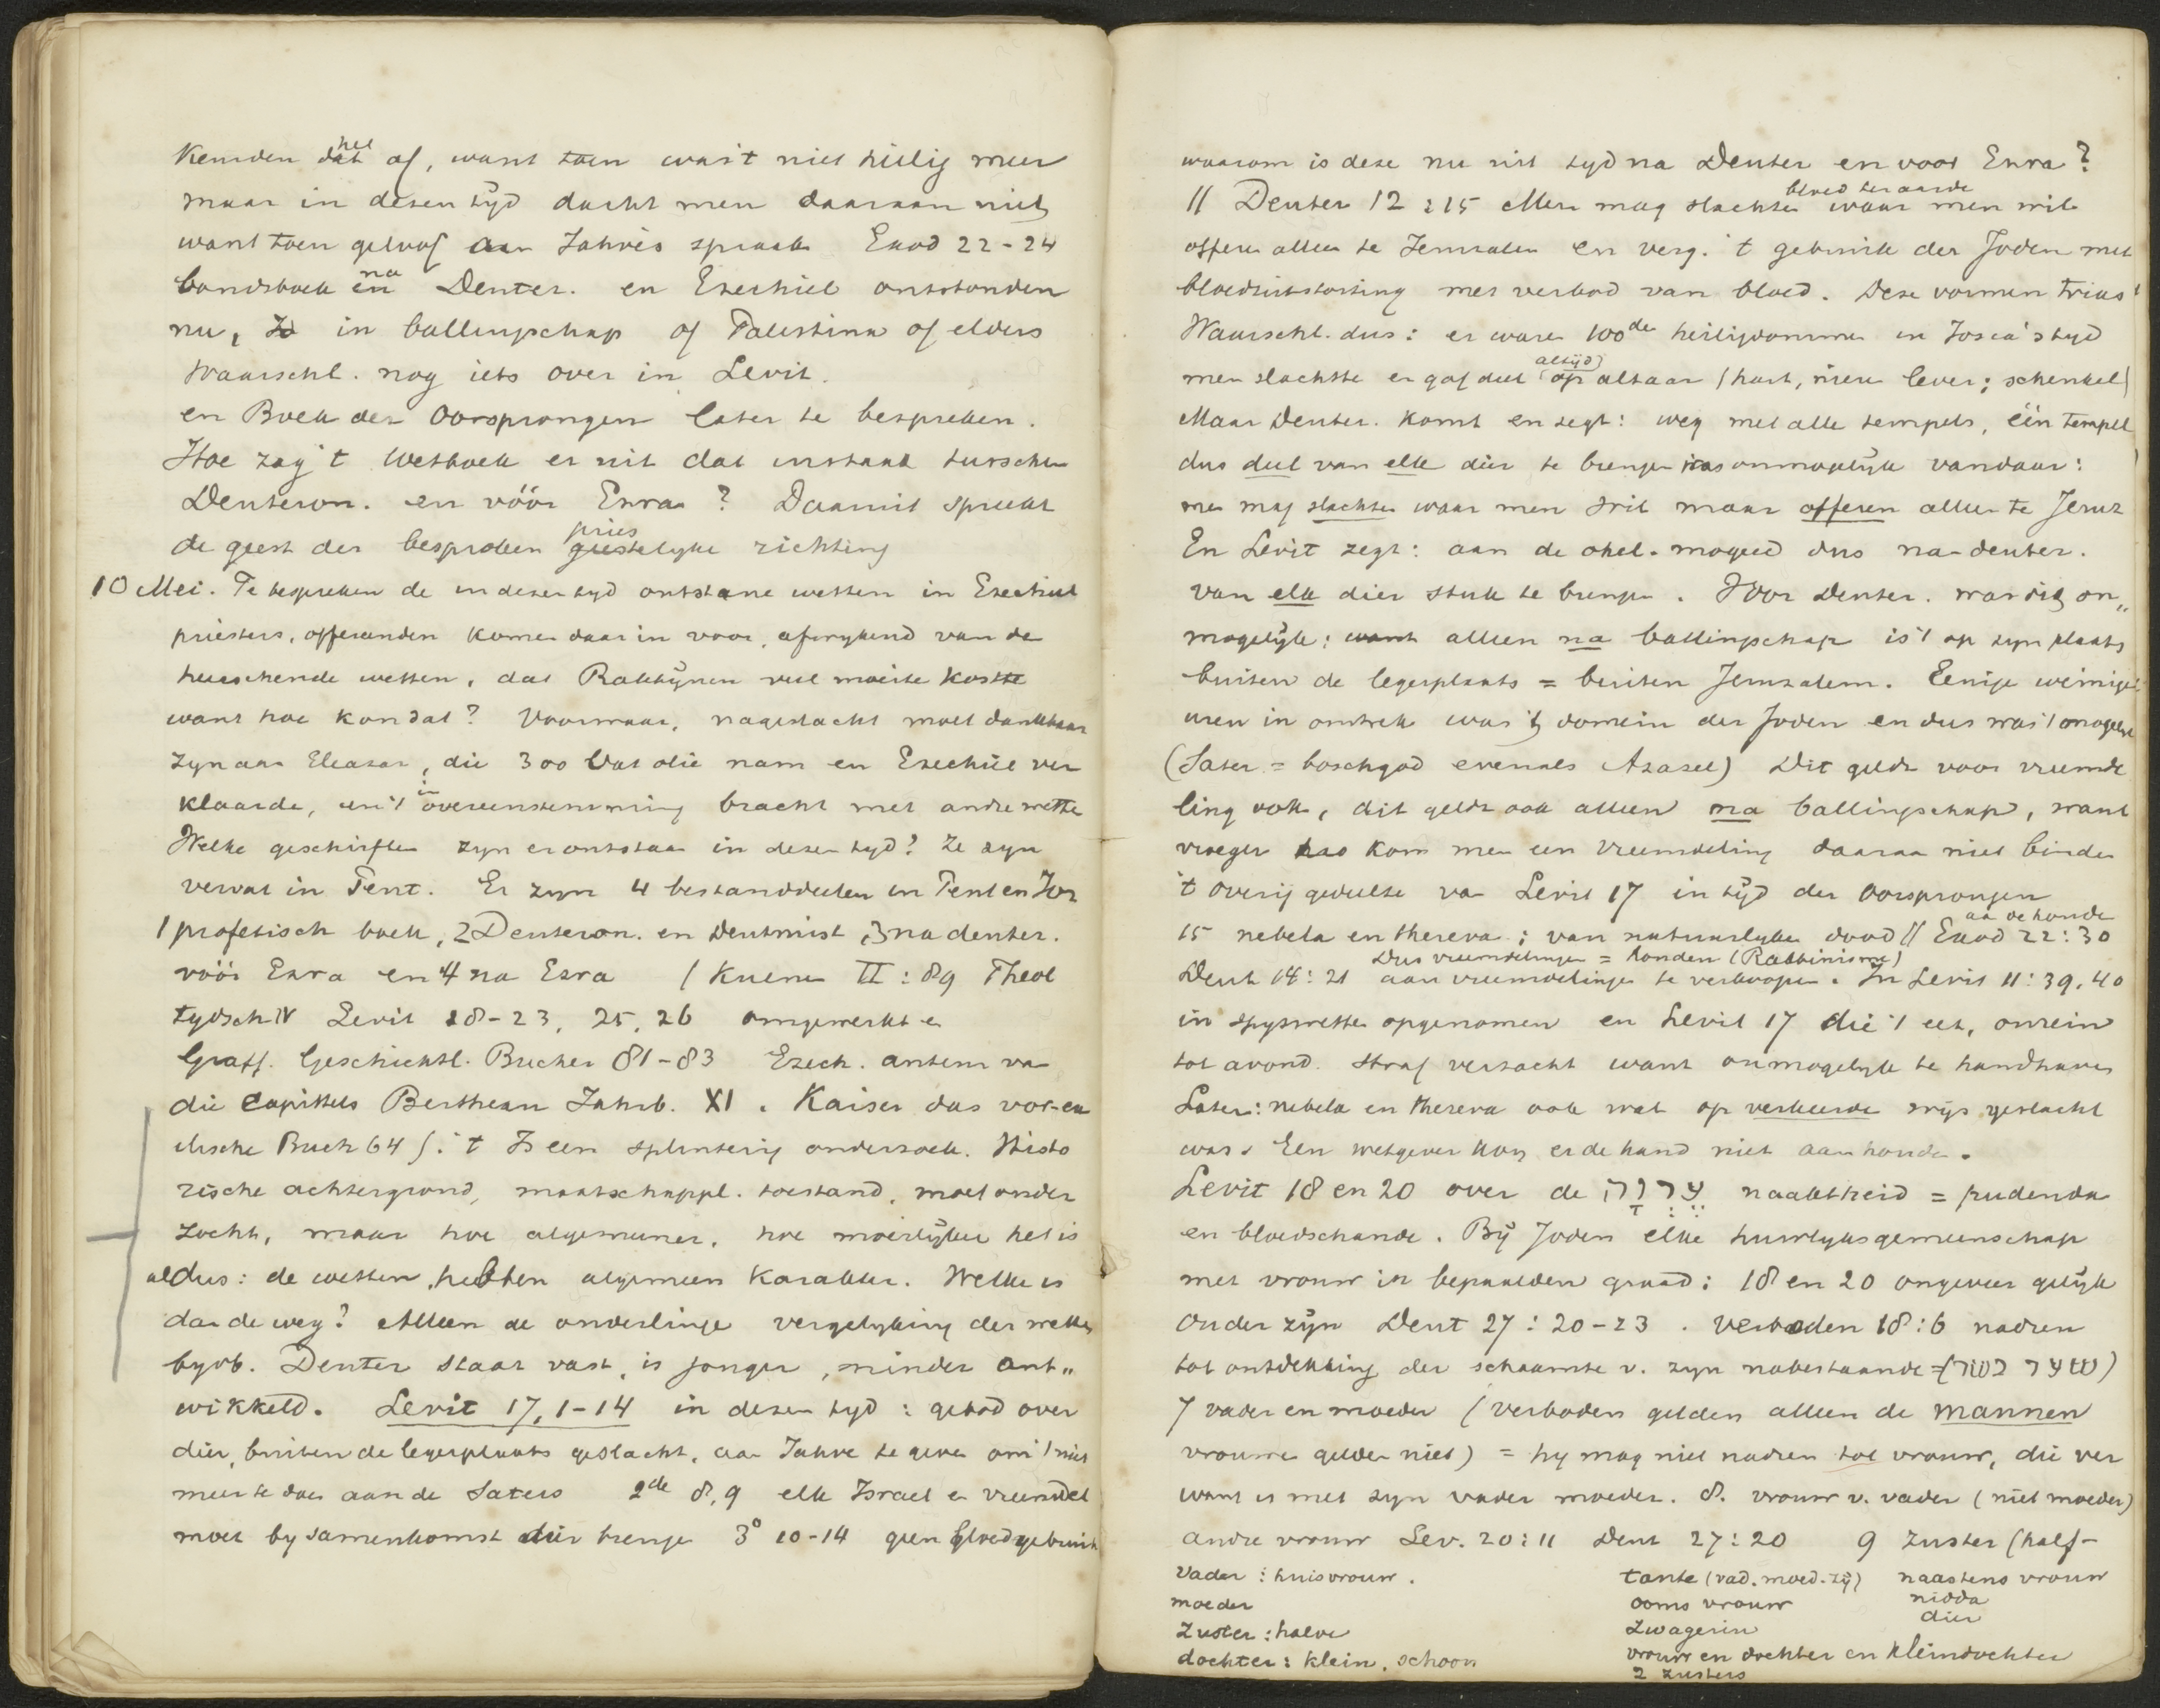 Kenden het af, want toen was 't niet heilig meer
maar in dezen tyd dacht men daaraan niet
want toen geloof aan Jahvès spraak Exod 22-24
bondsboek en na Deuter. en Ezechiel ontstonden
nu, in ballingschap of Palestina of elders
Waarschl. nog iets over in Levit.
en Boek der Oorsprongen later te bespreken.
Hoe zag 't Wetboek er uit dat instaat tusschen
Deuteron. en vóór Ezra? Daaruit spreekt
de geest der besproken priestelyke richting
10 Mei. Te bespreken de in dezen tyd ontstane wetten in Ezechiel
priesters, offeranden komen daarin voor, afwykend van de
heerschende wetten, dat Rabbijnen veel moeite kostte
want hoe kon dat? Voorwaar, nageslacht moet dankbaar
zyn aan Eleazar, die 300 vat olie nam en Ezechiel ver
klaarde, en 't in overeenstemming bracht met andre wette
Welke geschriften zyn er ontstaan in dezen tyd? Ze zyn
vervat in Pent. Er zyn 4 bestanddeelen in Pent en Joz
1 profetisch boek, 2 Deuteron. en Deutmist, 3 na deuter.
vóór Ezra en 4 na Ezra (Kuenen II: 89 Theol
tydschr Levit 18-23, 25, 26 omgewerkt en
Graff. Geschichtl. Bucher 81-83 Ezech. auteur van
die Capittels Bertheau Jahrb. XI. Kaiser das vor-ex
ilische Buch 64 f. 't Is een splinterig onderzoek. Histo
rische achtergrond, maatschappl. toestand, moet onder
zocht, maar hoe algemeener, hoe moeilyker het is
aldus: de wetten hebben algemeen karakter. Welke is
dan de weg? Alleen de onderlinge vergelyking der wetten
byvb. Deuter staat vast, is jonger, minder ont„
wikkeld. Levit 17, 1-14 in dezen tyd: gebod over
dier, buiten de legerplaats geslacht, aan Jahve te geven om 't niet
meer te doen aan de Saters 2de 8, 9 elk Israel en vreemdel
moet by samenkomst dier brenge 3° 10-14 geen bloedgebruik
waarom is deze nu uit tyd na Deuter en voor Ezra?
// Deuter 12:15 Men mag slachten waar men wil
bloed ter aarde
offeren alleen te Jeruzalem en verg. 't gebruik der Joden met
bloeduitstorting met verbod van bloed. Deze vormen trias
Waarschl. dus: er waren 100de heiligdomme in Josia's tyd
men slachtte er gaf deel altijd op altaar (hart, nieren lever; schenkel)
Maar Deuter. komt en zegt: weg met alle tempels, één tempel
dus deel van elk dier te brengen was onmogelyk vandaar:
men mag slachten waar men wil maar offeren alleen te Jeruz
En Levit zegt: aan de ohel-mogeed dus na-deuter.
van elk dier stuk te brengen. Voor Deuter. was dit on„
mogelyk; want alleen na ballingschap is 't op zyn plaats
buiten de legerplaats = buiten Jeruzalem. Eenige weinige
uren in omtrek was 't domein der Joden en dus was 't mogelyk
(Sater = boschgod evenals Azazel) Dit geldt voor vreemde
ling ook, dit geldt ook alleen na ballingschap, want
vroeger kon men een vreemdeling daaraan niet binden
't overig gedeelte van Levit 17 in tijd der Oorsprongen
15 nebela en thereva; van natuurlyken dood // Exod 22:30
aan de honde
Dus vreemdelingen = honden (Rabbinisme)
Deut 14:21 aan vreemdelinge te verkoopen. In Levit 11:39, 40
in spyswette opgenomen en Levit 17 die 't eet, onrein
tot avond. Straf verzacht want onmogelyk te handhaven
Later: nebela en thereva ook wat op verkeerde wijs geslacht
was. Een wetgever kon er de hand niet aan houden.
Levit 18 en 20 over de עֶרְוָה naaktheid = pudenda
en bloedschande. Bij Joden elke huwlyksgemeenschap
met vrouw in bepaalden graad: 18 en 20 ongeveer gelijk
Ouder zijn Deut 27:20-23. Verboden 18:6 nadren
tot ontdekking der schaamte v. zyn nabestaande = (שאר בשר)
7 vader en moeder (verboden gelden alleen de mannen
vrouwen gelden niet) = hy mag niet nadren tot vrouw, die ver
want is met zyn vader moeder. 8. vrouw v. vader (niet moeder)
andre vrouw Lev. 20:11 Deut 27:20 9 Zuster (half-
Vader: huisvrouw.
moeder
Zuster: halve
dochter: klein, schoon
tante (vad. moed. zij)
ooms vrouw
Zwagerin
vrouw en dochter en kleindochter
2 zusters
naastens vrouw
nidda
dier